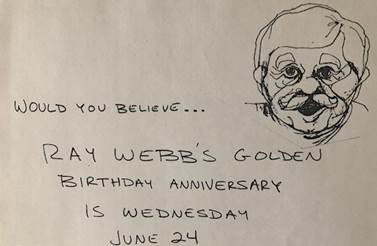 WOULD YOU BELIEVE...
RAY WEBB'S GOLDEN
BIRTHDAY ANNIVERSARY
IS WEDNESDAY
JUNE 24